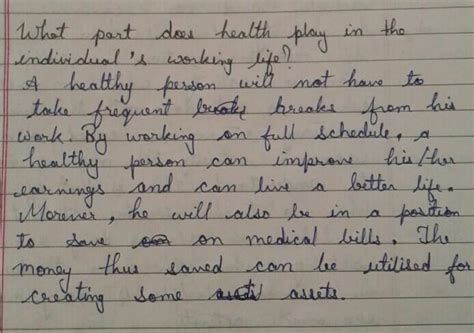 What part does health play in the
individual's working life?
A healthy person will not have to
take frequent breaks from his
work. By working on full schedule, a
healthy person can improve his/her
earnings and can live a better life.
Morever, he will also be in a position
to save on medical bills. The
money thus saved can be utilised for
creating some assets.